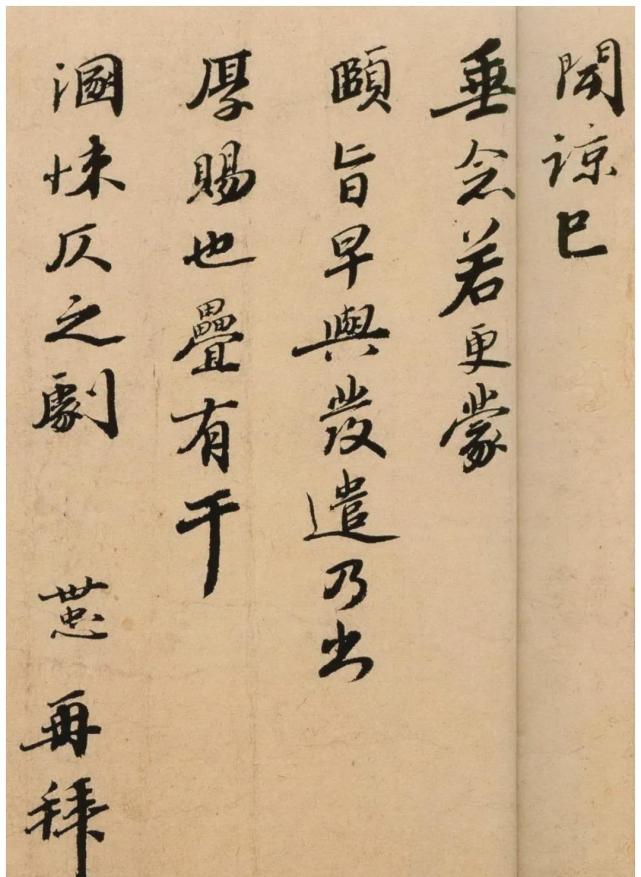 聞諒已
垂念若更蒙
頤旨早與發遣乃出
厚賜也疊有干
溷悚仄之劇 世忠再拜